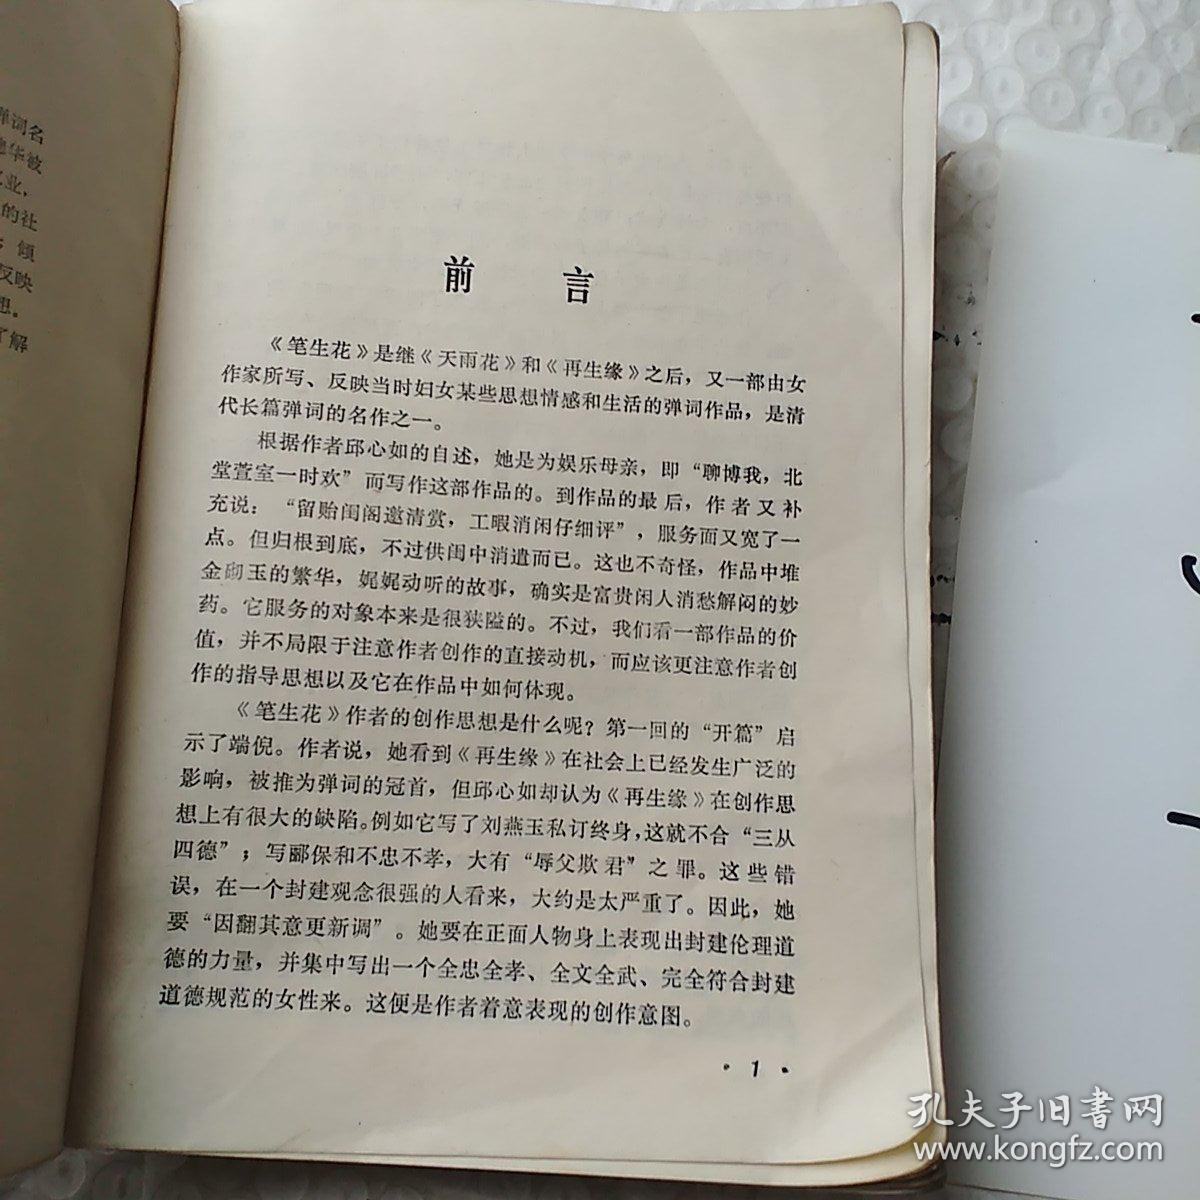 弹词名
德华被
业，
的社
；倾
反映
想。
了解
前言
《笔生花》是继《天雨花》和《再生缘》之后，又一部由女
作家所写、反映当时妇女某些思想情感和生活的弹词作品，是清
代长篇弹词的名作之一。
根据作者邱心如的自述，她是为娱乐母亲，即“聊博我，北
堂萱室一时欢”而写作这部作品的。到作品的最后，作者又补
充说：“留贻闺阁邀清赏，工暇消闲仔细评”，服务面又宽了一
点。但归根到底，不过供闺中消遣而已。这也不奇怪，作品中堆
金砌玉的繁华，娓娓动听的故事，确实是富贵闲人消愁解闷的妙
药。它服务的对象本来是很狭隘的。不过，我们看一部作品的价
值，并不局限于注意作者创作的直接动机，而应该更注意作者创
作的指导思想以及它在作品中如何体现。
《笔生花》作者的创作思想是什么呢？第一回的“开篇”启
示了端倪。作者说，她看到《再生缘》在社会上已经发生广泛的
影响，被推为弹词的冠首，但邱心如却认为《再生缘》在创作思
想上有很大的缺陷。例如它写了刘燕玉私订终身，这就不合“三从
四德”；写郦保和不忠不孝，大有“辱父欺君”之罪。这些错
误，在一个封建观念很强的人看来，大约是太严重了。因此，她
要“因翻其意更新调”。她要在正面人物身上表现出封建伦理道
德的力量，并集中写出一个全忠全孝、全文全武、完全符合封建
道德规范的女性来。这便是作者着意表现的创作意图。
·1·
孔夫子旧书网
www.kongfz.com